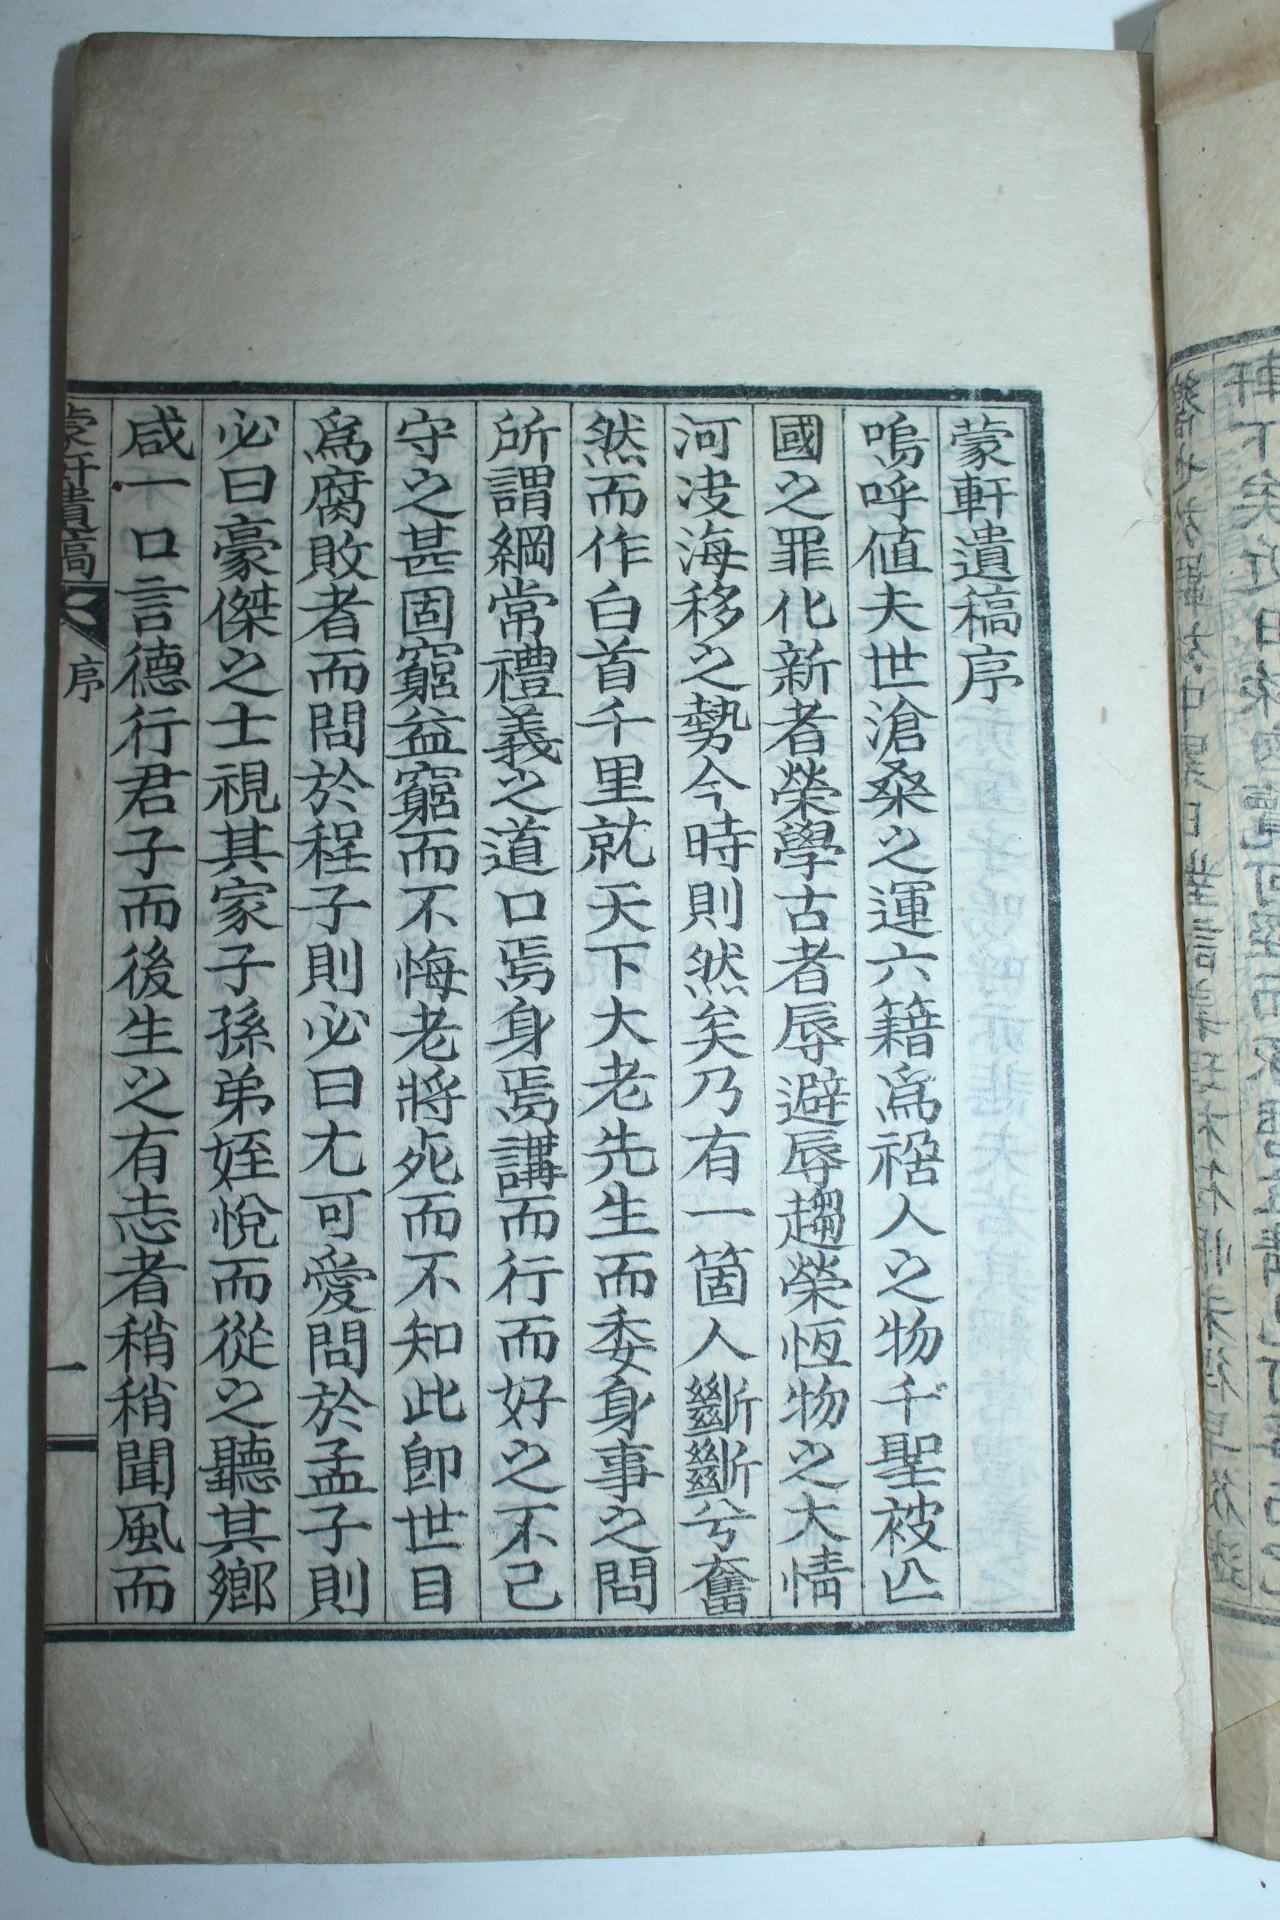 蒙軒遺稿序
嗚呼値夫世滄桑之運六籍爲禍人之物千聖被亾
國之罪化新者榮學古者辱避辱趨榮恆物之大情
河决海移之勢今時則然矣乃有一箇人斷斷兮奮
然而作白首千里就天下大老先生而委身事之問
所謂綱常禮義之道口焉身焉講而行而好之不已
守之甚固窮益窮而不悔老將死而不知此卽世目
爲腐敗者而問於程子則必曰尤可愛問於孟子則
必曰豪傑之士視其家子孫弟姪悅而從之聽其鄕
咸一口言德行君子而後生之有志者稍稍聞風而
蒙軒遺稿 序 一